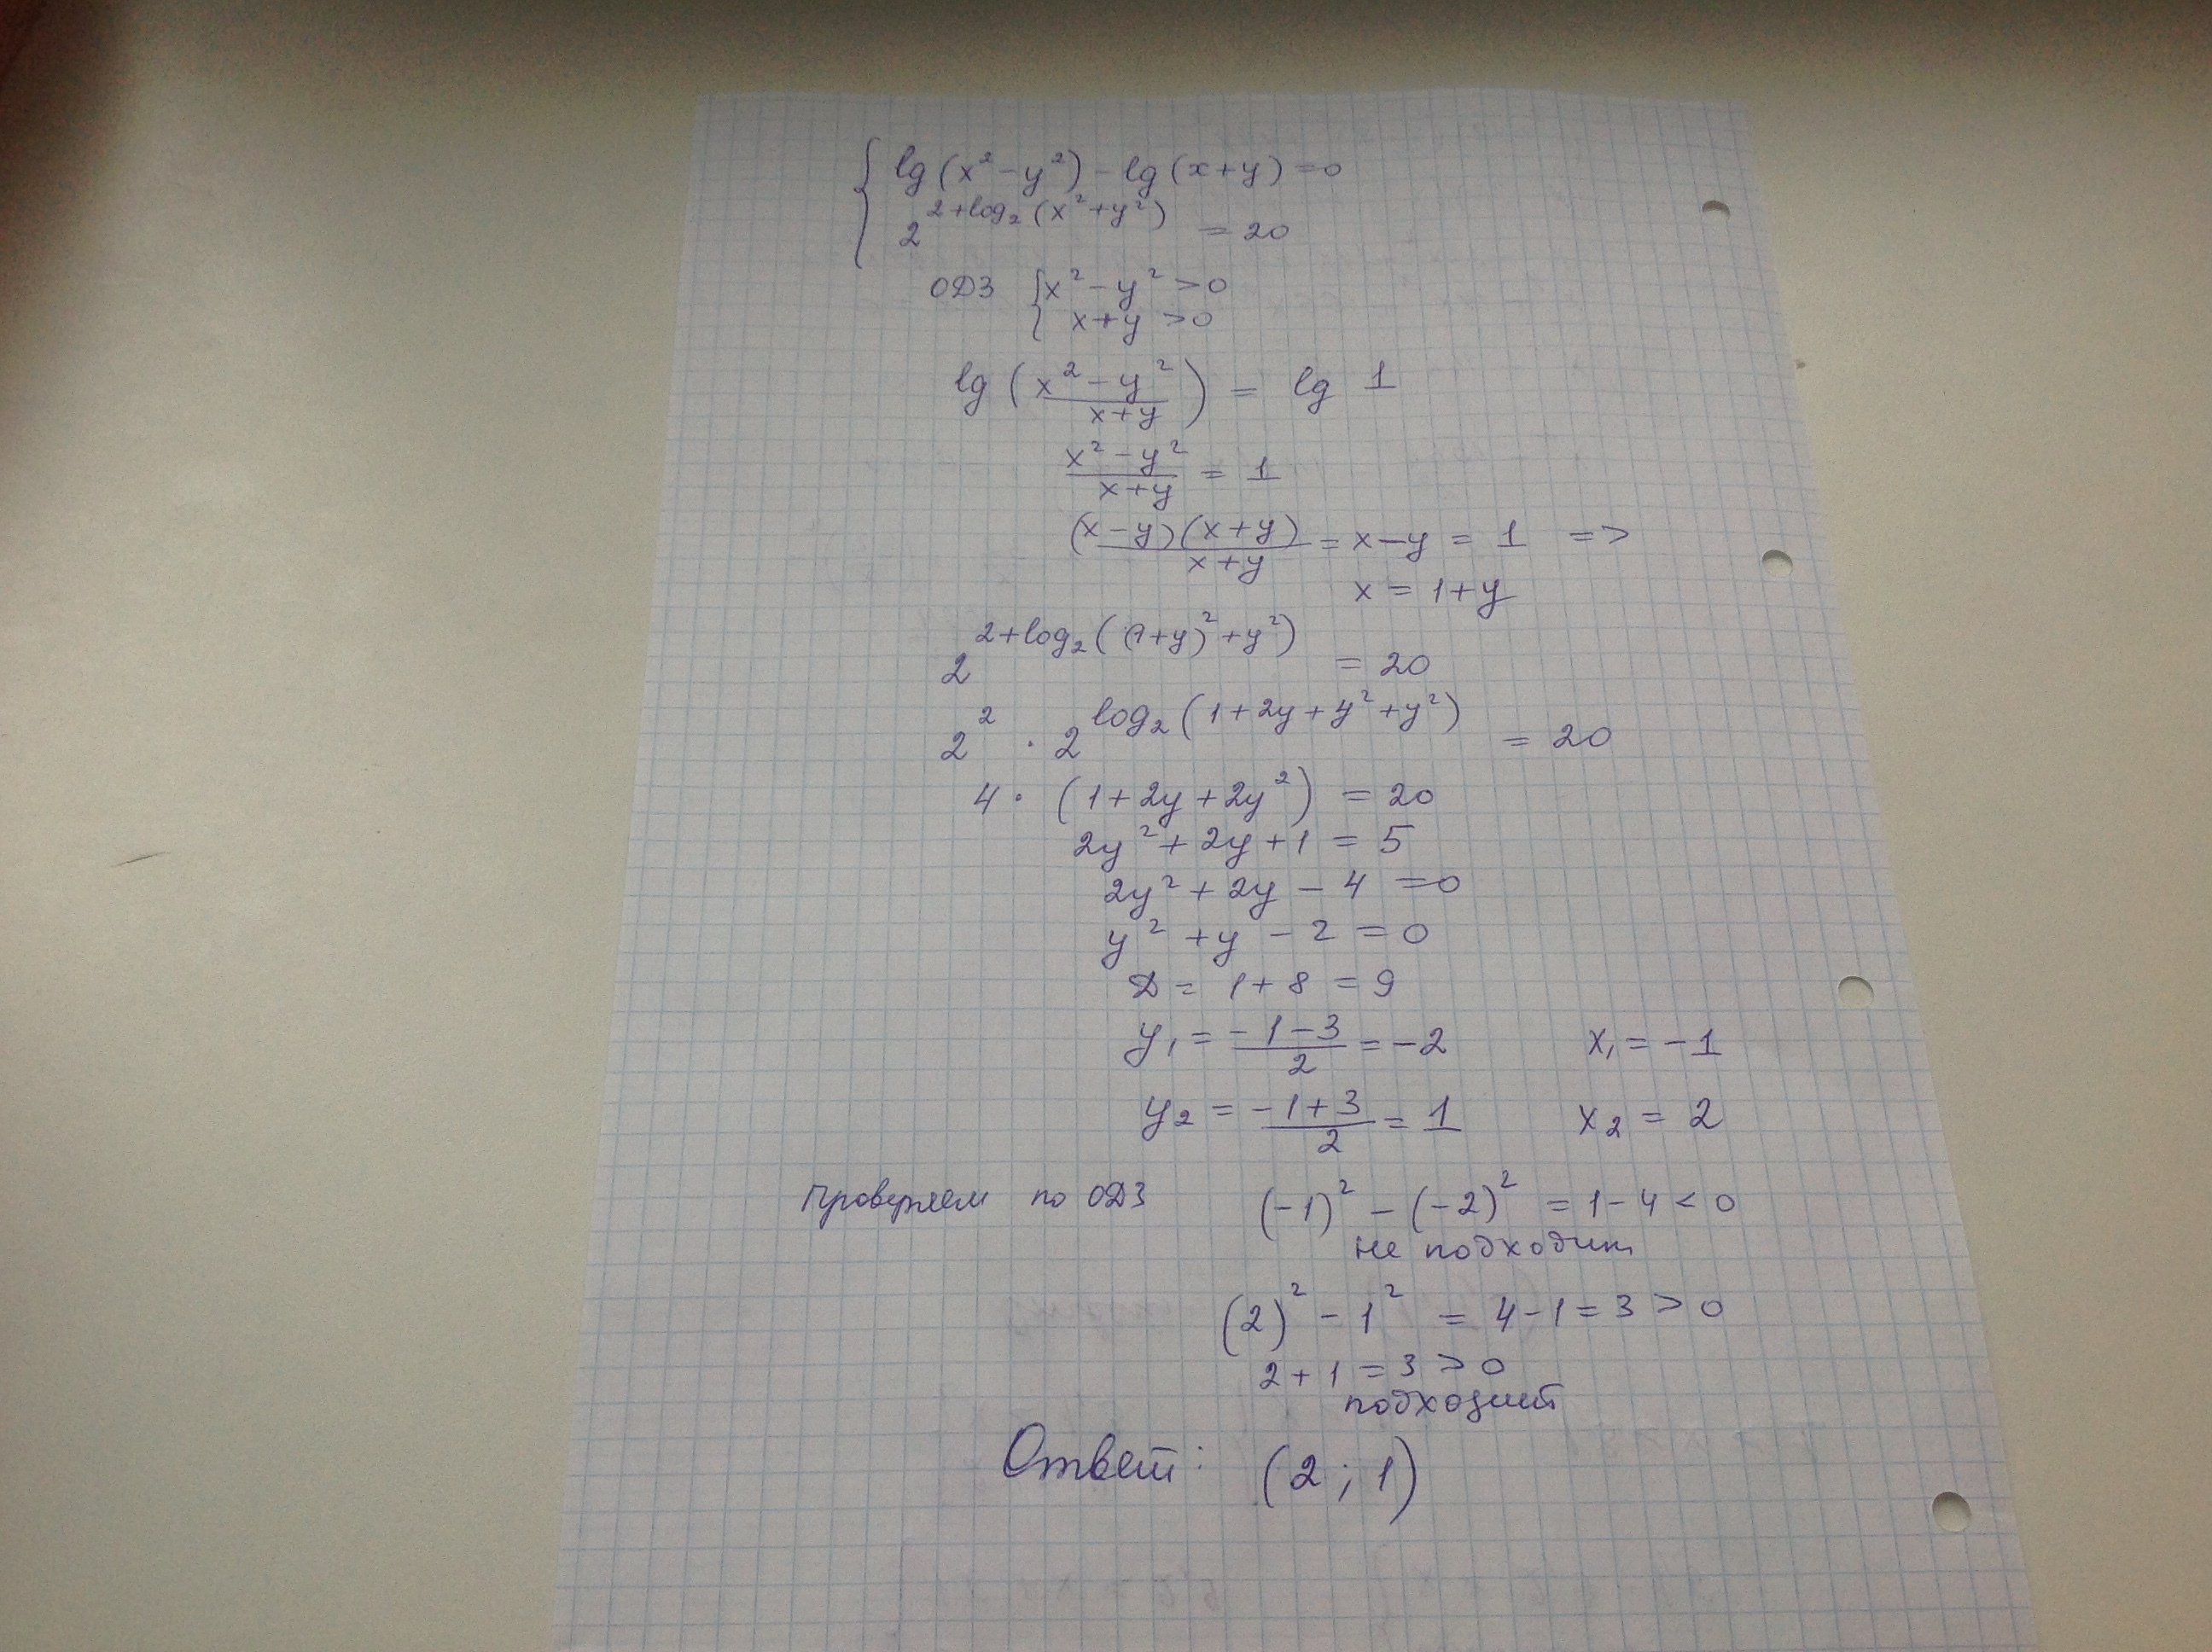 { lg(x² - y²) - lg(x+y) = 0
2^(2+log₂(x²+y²)) = 20
ОДЗ { x² - y² > 0
x+y > 0
lg((x² - y²)/(x+y)) = lg 1
(x² - y²)/(x+y) = 1
((x-y)(x+y))/(x+y) = x-y = 1 =>
x = 1+y
2^(2+log₂((1+y)²+y²)) = 20
2² · 2^(log₂(1+2y+y²+y²)) = 20
4 · (1+2y+2y²) = 20
2y² + 2y + 1 = 5
2y² + 2y - 4 = 0
y² + y - 2 = 0
D = 1+8 = 9
y₁ = (-1-3)/2 = -2 x₁ = -1
y₂ = (-1+3)/2 = 1 x₂ = 2
Проверяем по ОДЗ (-1)² - (-2)² = 1-4 < 0
не подходит
(2)² - 1² = 4-1 = 3 > 0
2+1 = 3 > 0
подходит
Ответ: (2; 1)